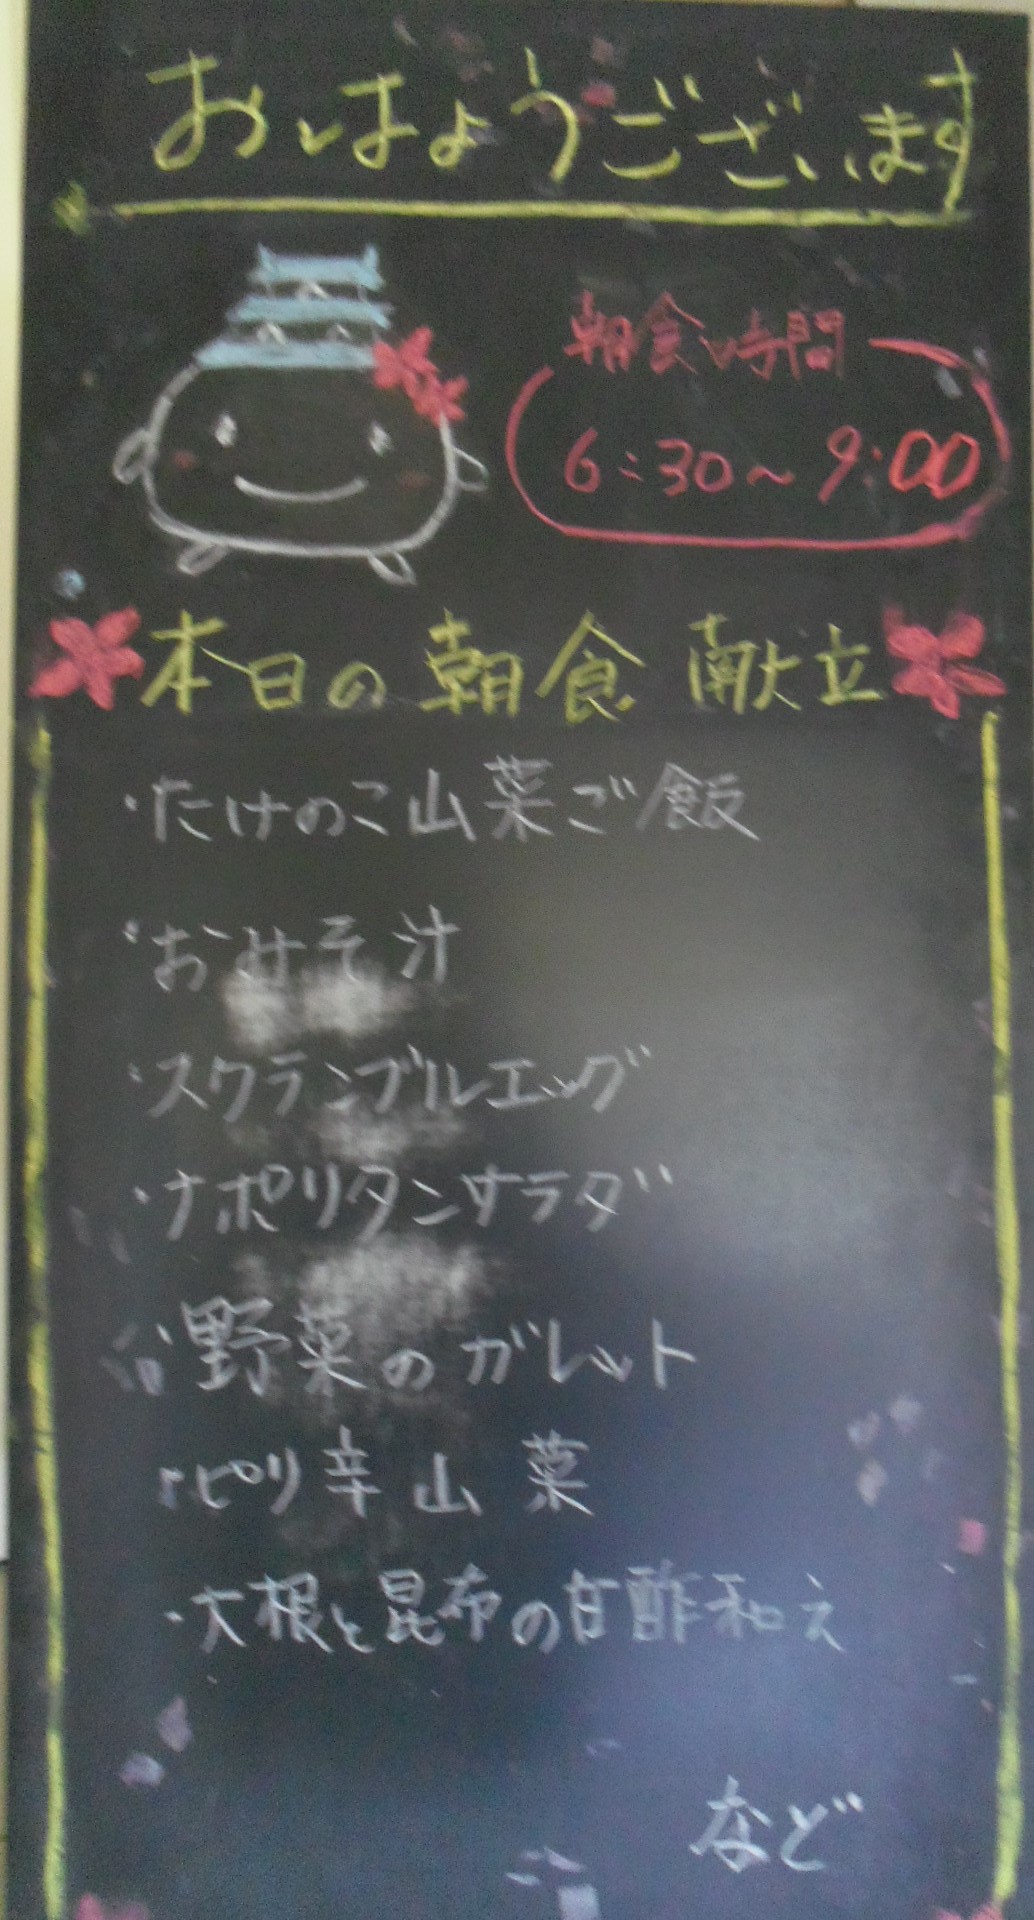 おはようございます
朝食時間
6:30~9:00
本日の朝食献立
・たけのこ山菜ご飯
・おみそ汁
・スクランブルエッグ
・ナポリタンサラダ
・野菜のガレット
・ピリ辛山菜
・大根と昆布の甘酢和え
など